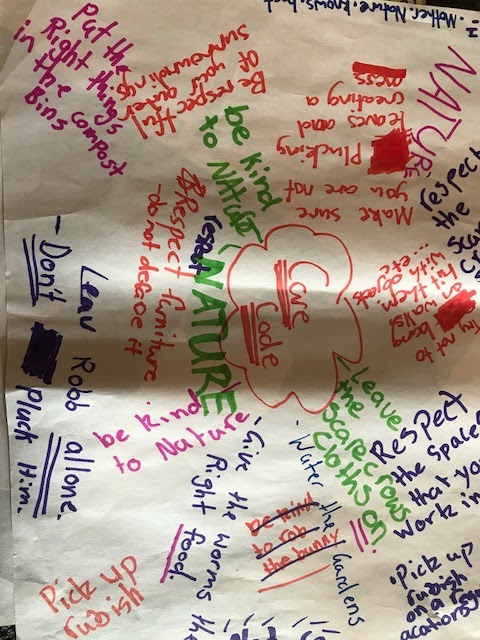 Mother.Nature.knows.best
NATURE
Put the
Right things
in the compost
Bins
Be respectful
of your outer
surroundings
be kind
to NATURE
Make sure
you are not
Plucking
leaves and
creating a
mess
respect
the
Respect furniture
do not deface it
respect
NATURE
Care
Code
Try not to
bang
on walls
hit them
with objects
... etc
Leave
the
scarecrows
Cloths on
!!
Respect
the Spaces
that you
work in
• Pick up
rubish
on a
- Don't
Pluck Him.
Leav Robb allone.
be kind
to Nature
- Give the worms the
Right food.
• Water the Gardens
be kind
to rob
the bunny
Pick up
rubish